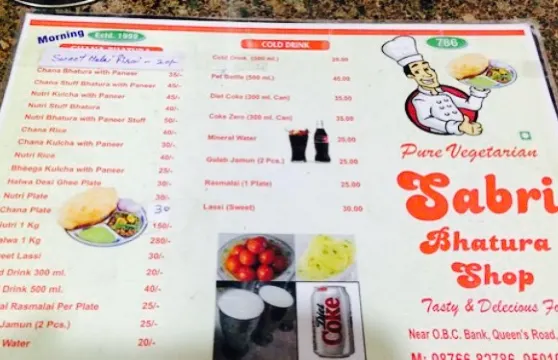 Morning
Estd. 1999
CHANA BHATURA
Chana Bhatura with Paneer 35/-
Chana Stuff Bhatura with Paneer
Nutri Kulcha with Paneer 45/-
Nutri Stuff Bhatura 40/-
Nutri Bhatura with Paneer Stuff 50/-
Chana Rice 40/-
Chana Kulcha with Paneer
Nutri Rice 40/-
Bheega Kulcha with Paneer
Halwa Desi Ghee Plate 30/-
Nutri Plate 30/-
Chana Plate 30
utri 1 Kg 150/-
alwa 1 Kg 280/-
eet Lassi 30/-
d Drink 300 ml. 20/-
Drink 500 ml. 40/-
al Rasmalai Per Plate 25/-
Jamun (2 Pcs.) 25/-
Water 20/-
COLD DRINK
Cold Drink
Pet Bottle (500 ml.)
Diet Coke (300 ml. Can) 35.00
Coke Zero (300 ml. Can) 35.00
Mineral Water
Gulab Jamun (2 Pcs.) 25.00
Rasmalai (1 Plate) 25.00
Lassi (Sweet) 30.00
Diet
Coke
786
Pure Vegetarian
Sabri
Bhatura
Shop
Tasty & Delecious Fo
Near O.B.C. Bank, Queen's Road,